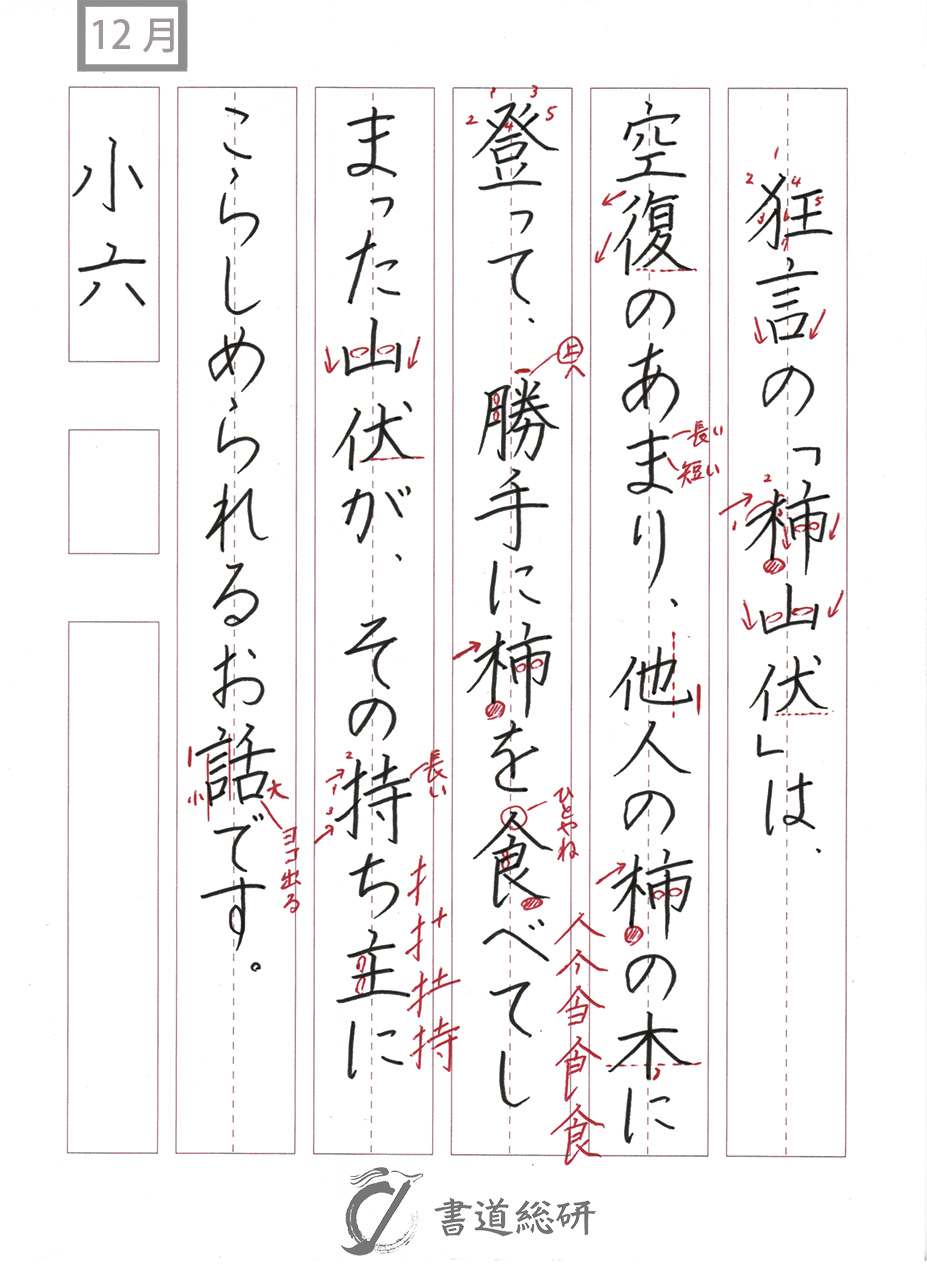 12月
狂言の「柿山伏」は、
空復のあまり、他人の柿の木に
長い
短い
登って、勝手に柿を食べてし
上へ
ひとやね
食
まった山伏が、その持ち主に
長い
持
こらしめられるお話です。
小
大
ヨコ出る
小六
書道総研